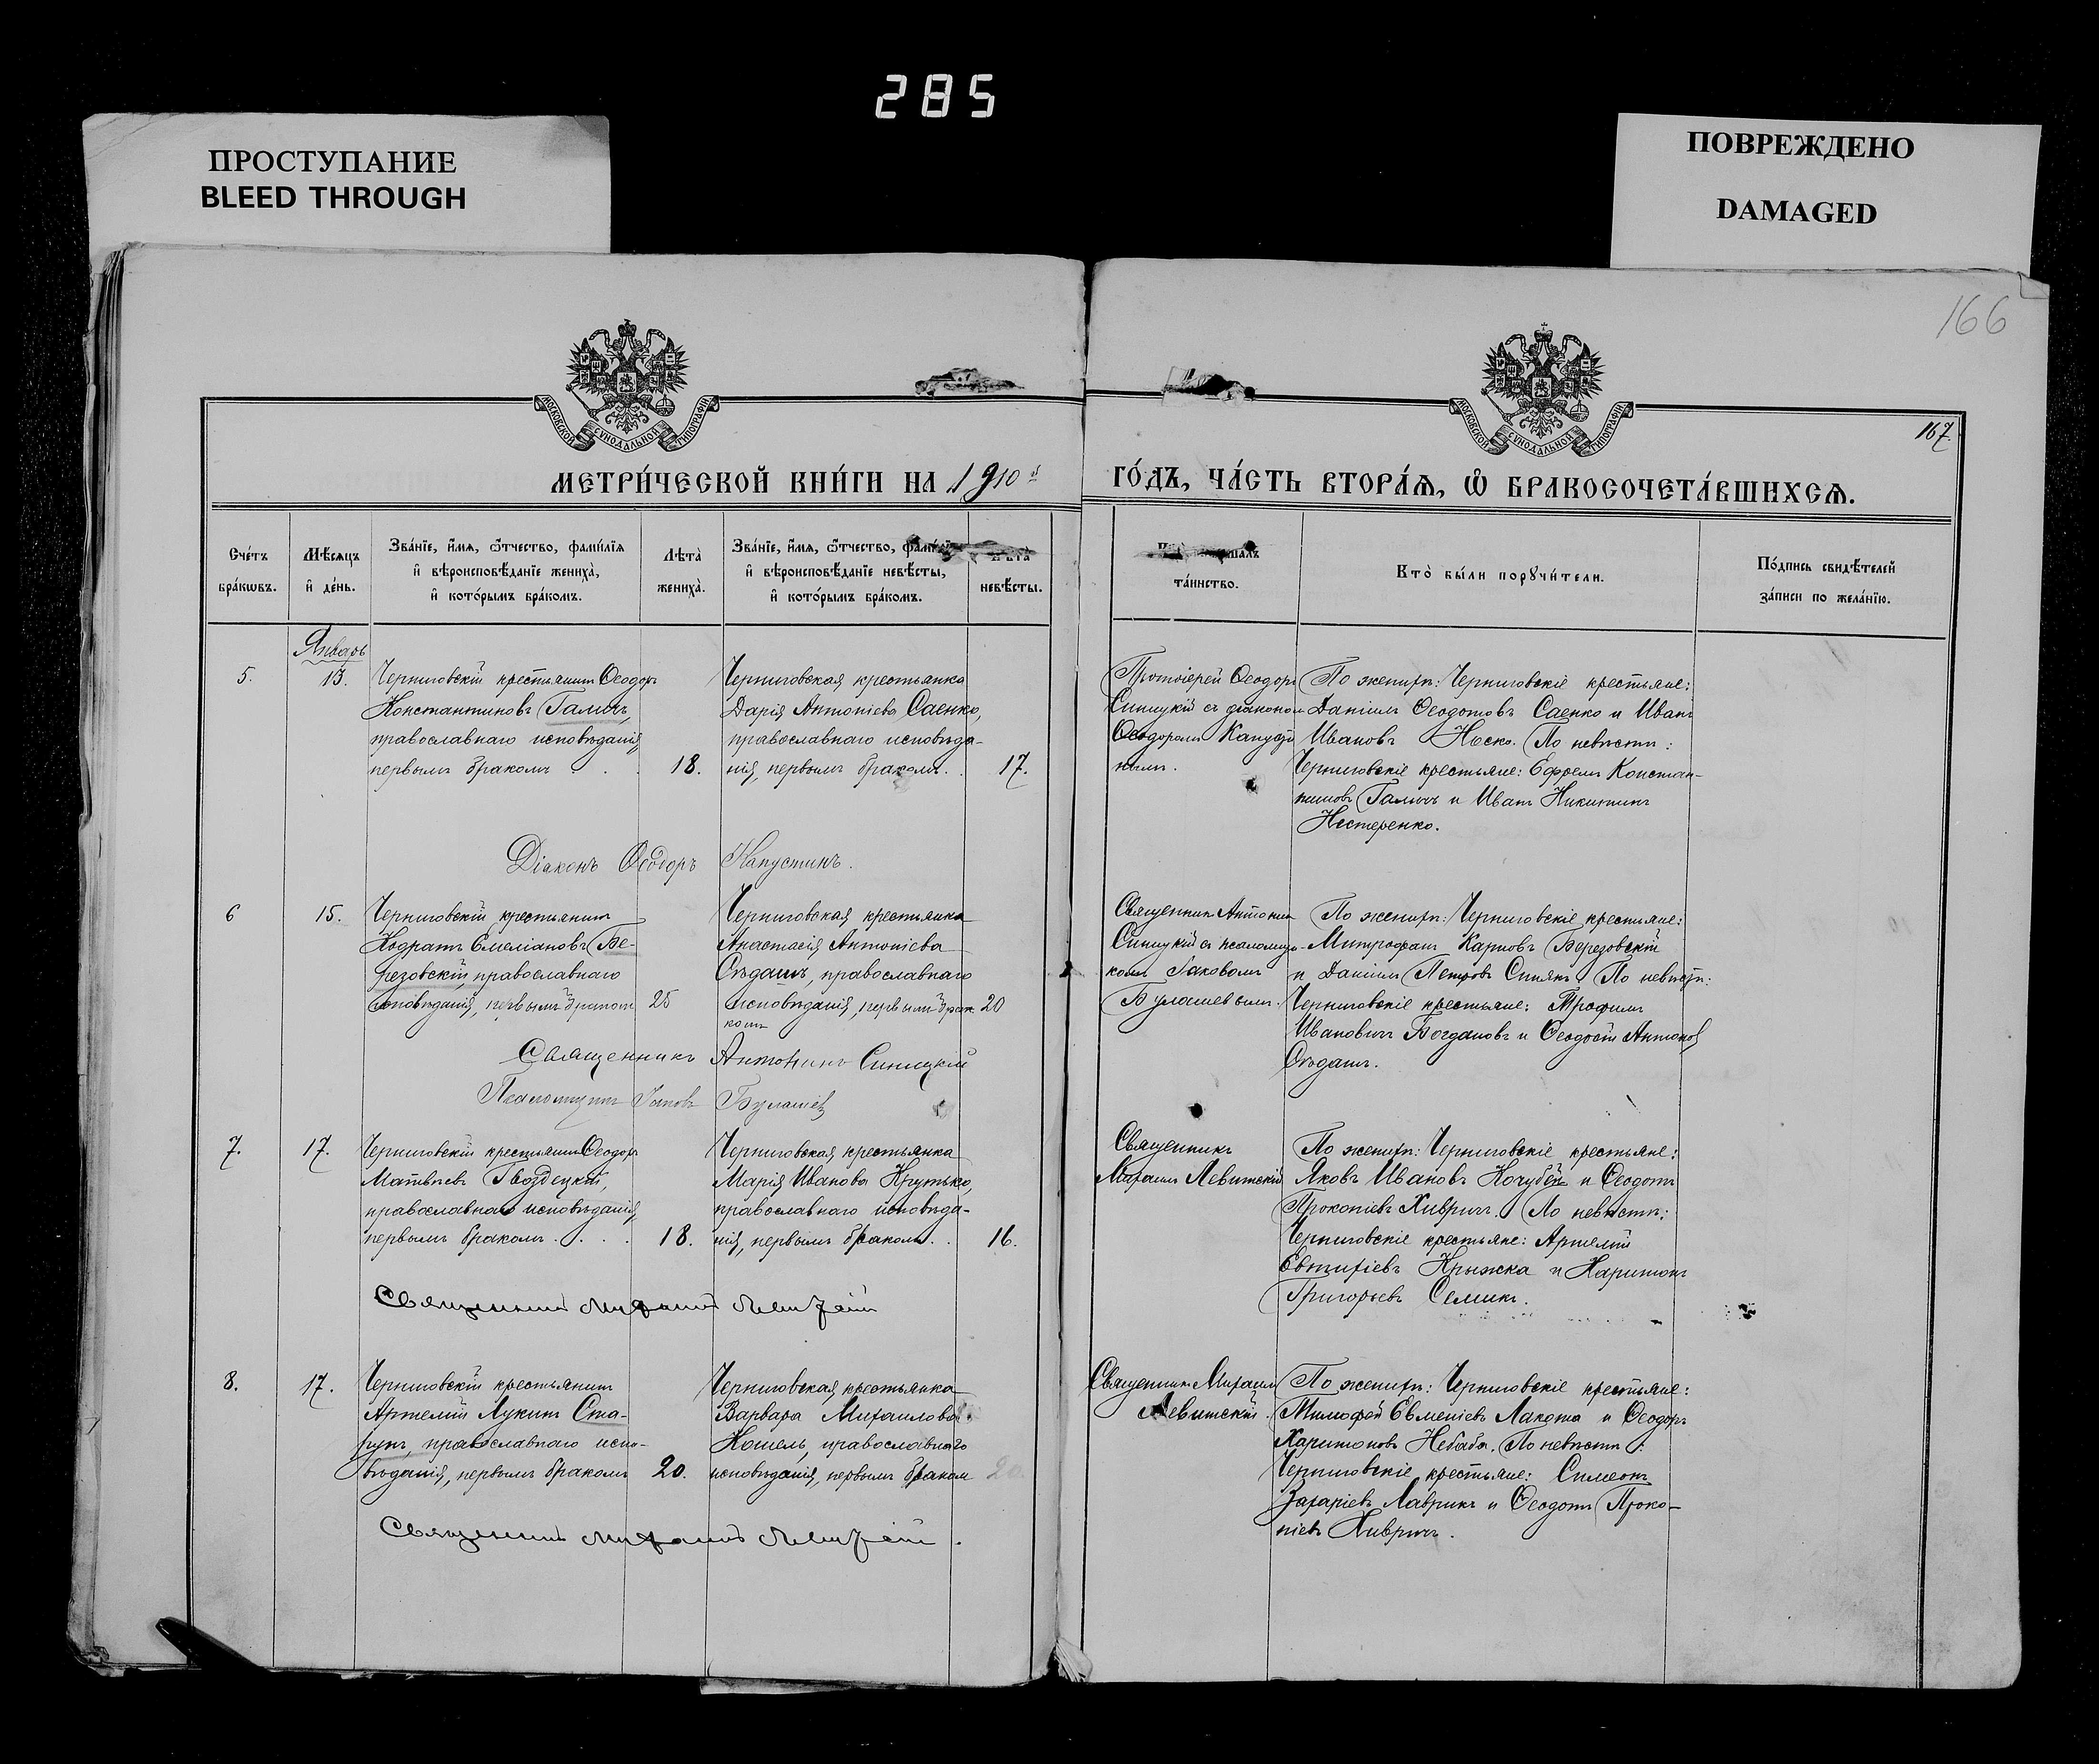 285
ПРОСТУПАНИЕ
BLEED THROUGH
ПОВРЕЖДЕНО
DAMAGED
166
МОСКОВСКОЙ СУНОДАЛЬНОЙ ТИПОГРАФІИ
МОСКОВСКОЙ СУНОДАЛЬНОЙ ТИПОГРАФІИ
167.
МЕТРИ́ЧЕСКОЙ КНИ́ГИ НА 1910й
ГО́ДЪ, ЧА́СТЬ ВТОРА́Ѧ, Ѽ БРАКОСОЧЕТА́ВШИХСѦ.
Сче́тъ
бра́кωвъ.
Мѣ́сяцъ
и҆ де́нь.
Зва́нїе, и҆́мѧ, ѻ҆́тчество, фами́лїѧ
и҆ вѣроисповѣ́данїе жениха̀,
и҆ кото́рымъ бра́комъ.
Лѣта̀
жениха̀.
Зва́нїе, и҆́мѧ, ѻ҆́тчество, фами́лїѧ
и҆ вѣроисповѣ́данїе невѣ́сты,
и҆ кото́рымъ бра́комъ.
Лѣта̀
невѣ́сты.
та́инство.
Кто̀ бы́ли порꙋчи́тели.
По́дпись свидѣ́телей
за́писи по жела́нїю.
Январь
5.
13.
Черниговскій крестьянинъ Ѳеодоръ
Константиновъ Галичъ,
православнаго исповѣданія,
первымъ бракомъ . . .
18.
Черниговская крестьянка
Дарія Антоніева Саенко,
православнаго исповѣда-
нія, первымъ бракомъ. .
17.
Протоіерей Ѳеодоръ
Синицкій съ діакономъ
Ѳеодоромъ Капусти
нымъ.
По женихѣ: Черниговскіе крестьяне:
Даніилъ Ѳеодотовъ Саенко и Иванъ
Ивановъ Носко. По невѣстѣ:
Черниговскіе крестьяне: Ефремъ Констан-
тиновъ Галичъ и Иванъ Никитинъ
Нестеренко.
Діаконъ Ѳеодоръ Капустинъ.
6
15.
Черниговскій крестьянинъ
Кодратъ Емеліановъ Бе-
резовскій, православнаго
исповѣданія, первымъ бракомъ
25
Черниговская крестьянка
Анастасія Антоніева
Сѣдашъ, православнаго
исповѣданія, первымъ бра-
комъ
20
Священникъ Антонинъ
Синицкій съ псаломщи-
комъ Іаковомъ
Булашевымъ.
По женихѣ: Черниговскіе крестьяне:
Митрофанъ Карповъ Березовскій
и Даніилъ Петровъ Синякъ. По невѣстѣ:
Черниговскіе крестьяне: Трофимъ
Ивановичъ Богдановъ и Ѳеодосій Антоновъ
Сѣдашъ.
Священникъ Антонинъ Синицкій
Псаломщикъ Іаковъ Булашевъ
7.
17.
Черниговскій крестьянинъ Ѳеодоръ
Матвѣевъ Гвоздецкій,
православнаго исповѣданія,
первымъ бракомъ . . . .
18.
Черниговская крестьянка
Марія Иванова Крутько,
православнаго исповѣда-
нія, первымъ бракомъ . .
16.
Священникъ
Михаилъ Левитскій
По женихѣ: Черниговскіе крестьяне:
Яковъ Ивановъ Кочубей и Ѳеодотъ
Прокопіевъ Хивричъ. По невѣстѣ:
Черниговскіе крестьяне: Артемій
Евтихіевъ Крыжка и Харитонъ
Григорьевъ Семикъ.
Священникъ Михаилъ Левитскій
8.
17.
Черниговскій крестьянинъ
Артемій Лукинъ Ста-
рунъ, православнаго испо-
вѣданія, первымъ бракомъ
20.
Черниговская крестьянка
Варвара Михаилова
Кошель, православнаго
исповѣданія, первымъ бракомъ
20.
Священникъ Михаилъ
Левитскій.
По женихѣ: Черниговскіе крестьяне:
Тимофей Евменіевъ Лакота и Ѳеодоръ
Харитоновъ Небаба. По невѣстѣ:
Черниговскіе крестьяне: Симеонъ
Захаріевъ Лаврикъ и Ѳеодотъ Проко-
піевъ Хивричъ.
Священникъ Михаилъ Левитскій.